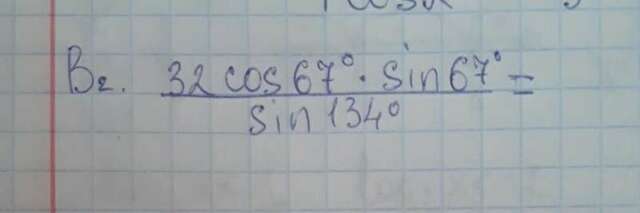 B₂. 32 cos 67° · sin 67° =
sin 134°